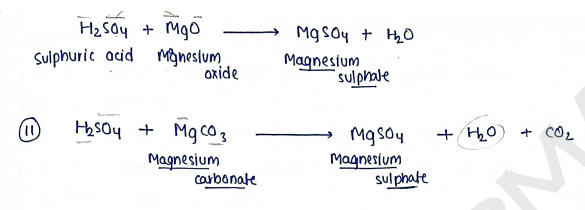 H₂SO₄ + MgO ⟶ MgSO₄ + H₂O
sulphuric acid Mgnesium oxide Magnesium sulphate
(11) H₂SO₄ + MgCO₃ ⟶ MgSO₄ + H₂O + CO₂
Magnesium carbonate Magnesium sulphate